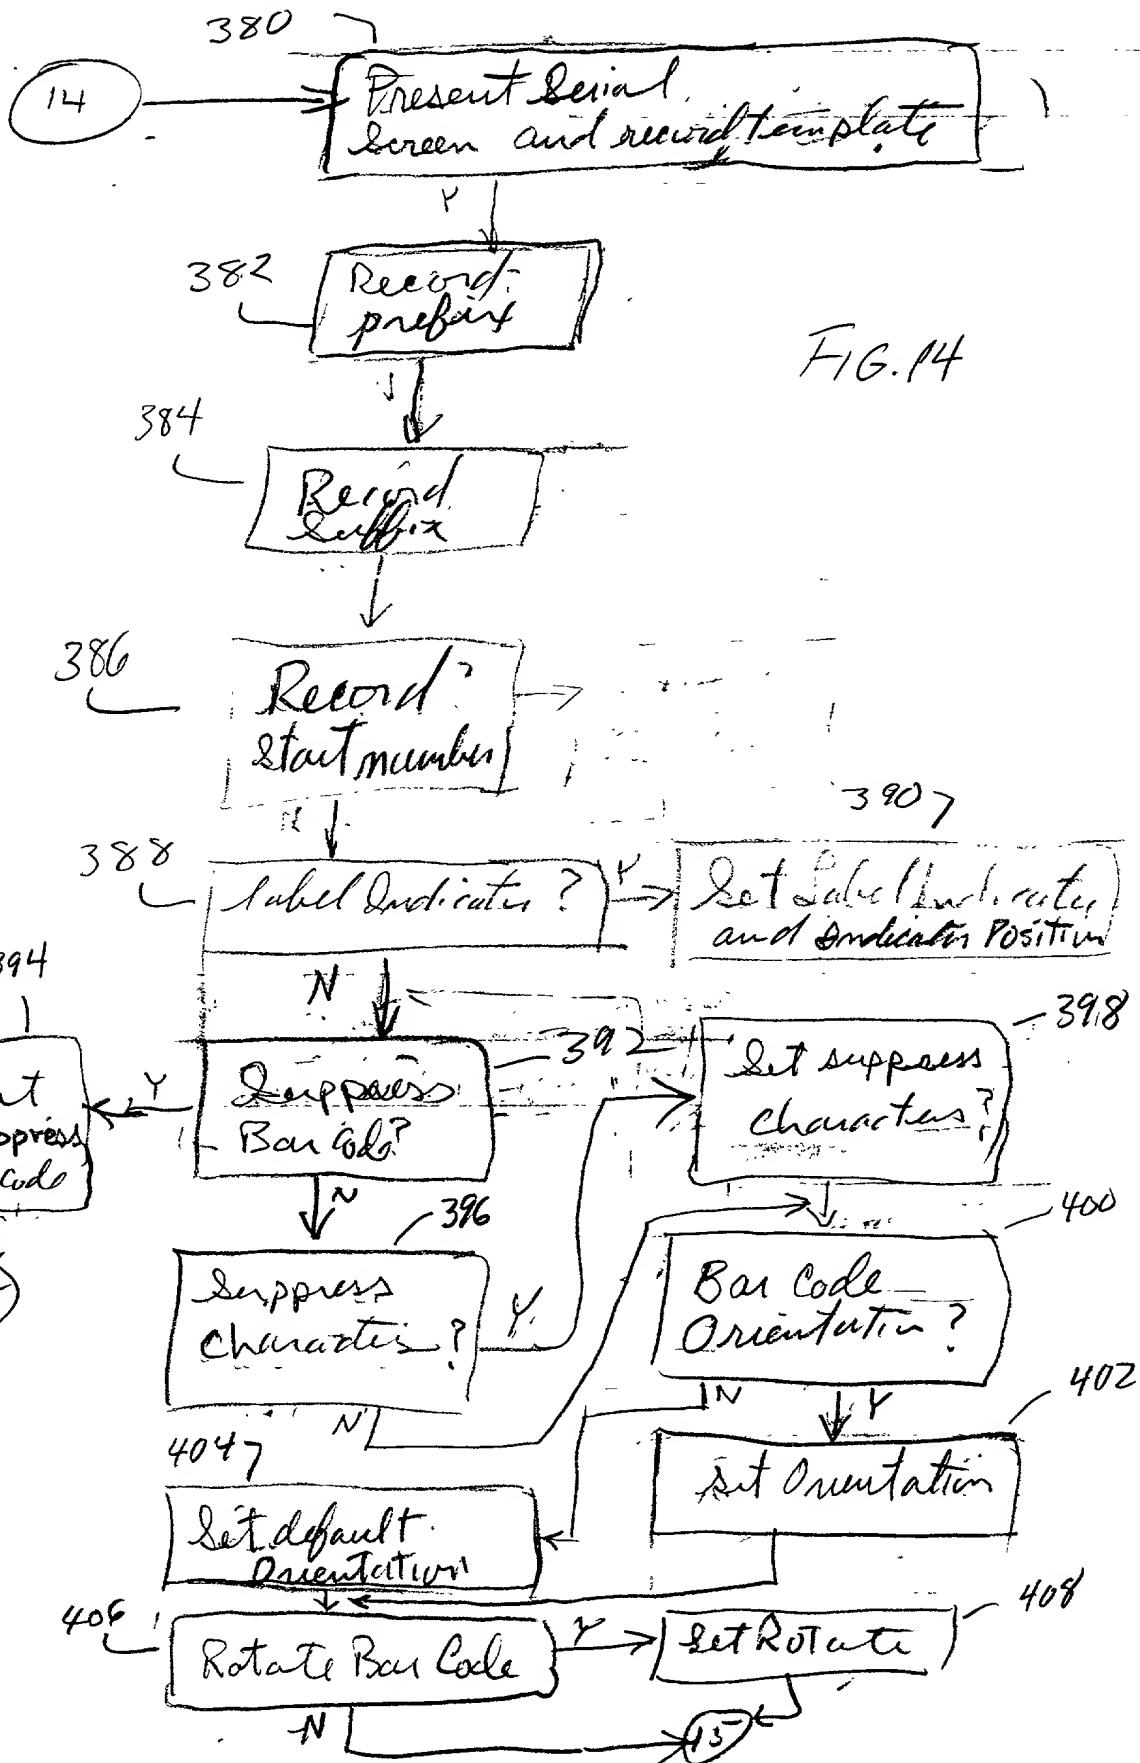 380
14
Present Serial
Screen and record template
Y
382
Record
prefix
FIG. 14
384
Record
Suffix
386
Record?
Start number
N
388
Label Indicator?
Y
3907
Set Label Indicator
and Indicator Position
394
N
398
Y
Suppress
Bar Code?
392
Set suppress
characters?
ppress
Code
N
396
400
Suppress
Characters?
Y
Bar Code
Orientation?
N
N
Y
402
404
Set Orientation
Set default
Orientation
406
408
Rotate Bar Code
Y
Set Rotate
N
15